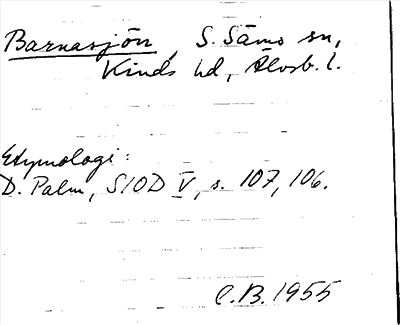 Barnasjön, S. Säms sn,
Kinds hd, Älvsb. l.
Etymologi:
D. Palm, SIOD V, s. 107, 106.
C.B. 1955